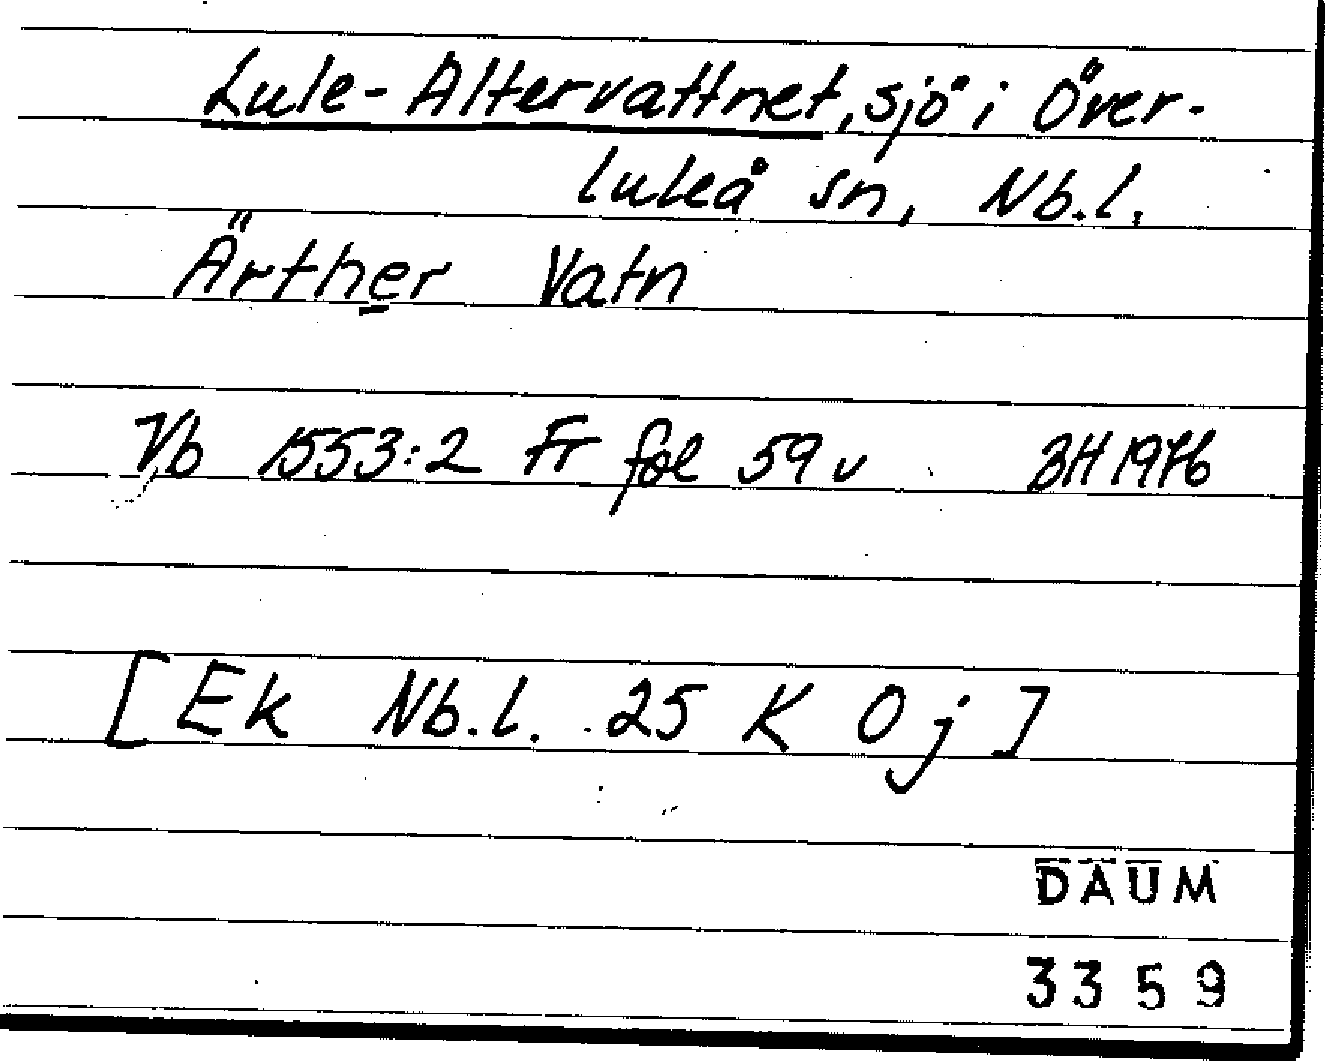 Lule-Altervattnet, sjö i Över-
luleå sn, Nb.l.
Ärther Vatn
Vb 1553:2 Fr fol 59 v BH 1976
[Ek Nb.l. 25 K 0 j]
DAUM
3359